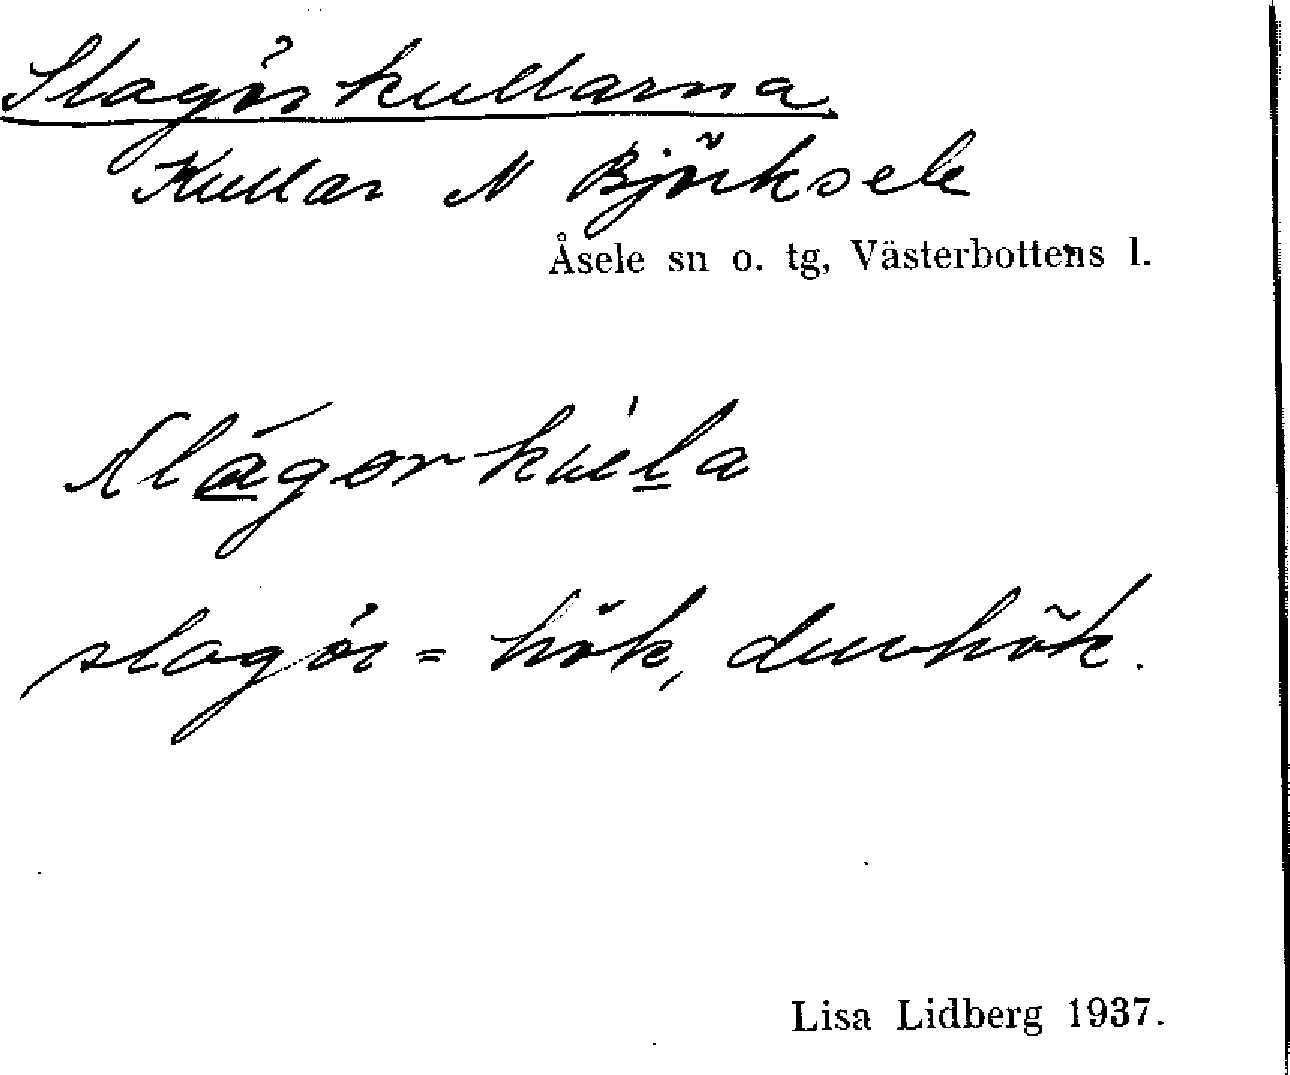 Slagörkullarna
Kullar N Björksele
Åsele sn o. tg, Västerbottens l.
slágorkuła
slagör = hök, duvhök.
Lisa Lidberg 1937.